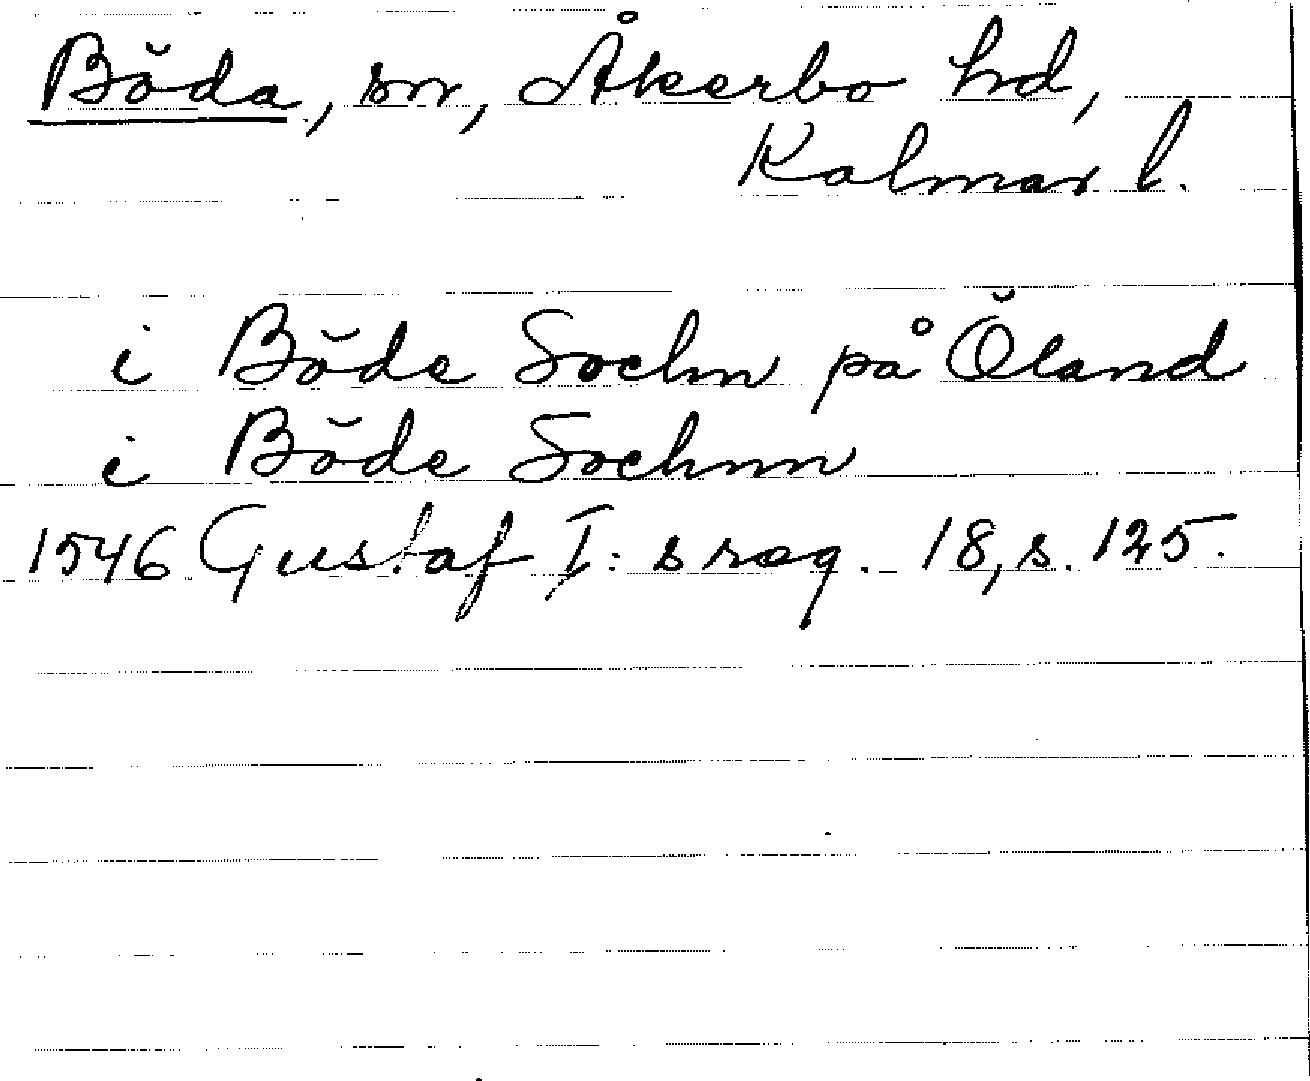 Böda, sn, Åkerbo hd,
Kalmar l.
i Böde Sochn på Öland
i Böde Sochnn
1546 Gustaf I:s reg. 18, s. 125.